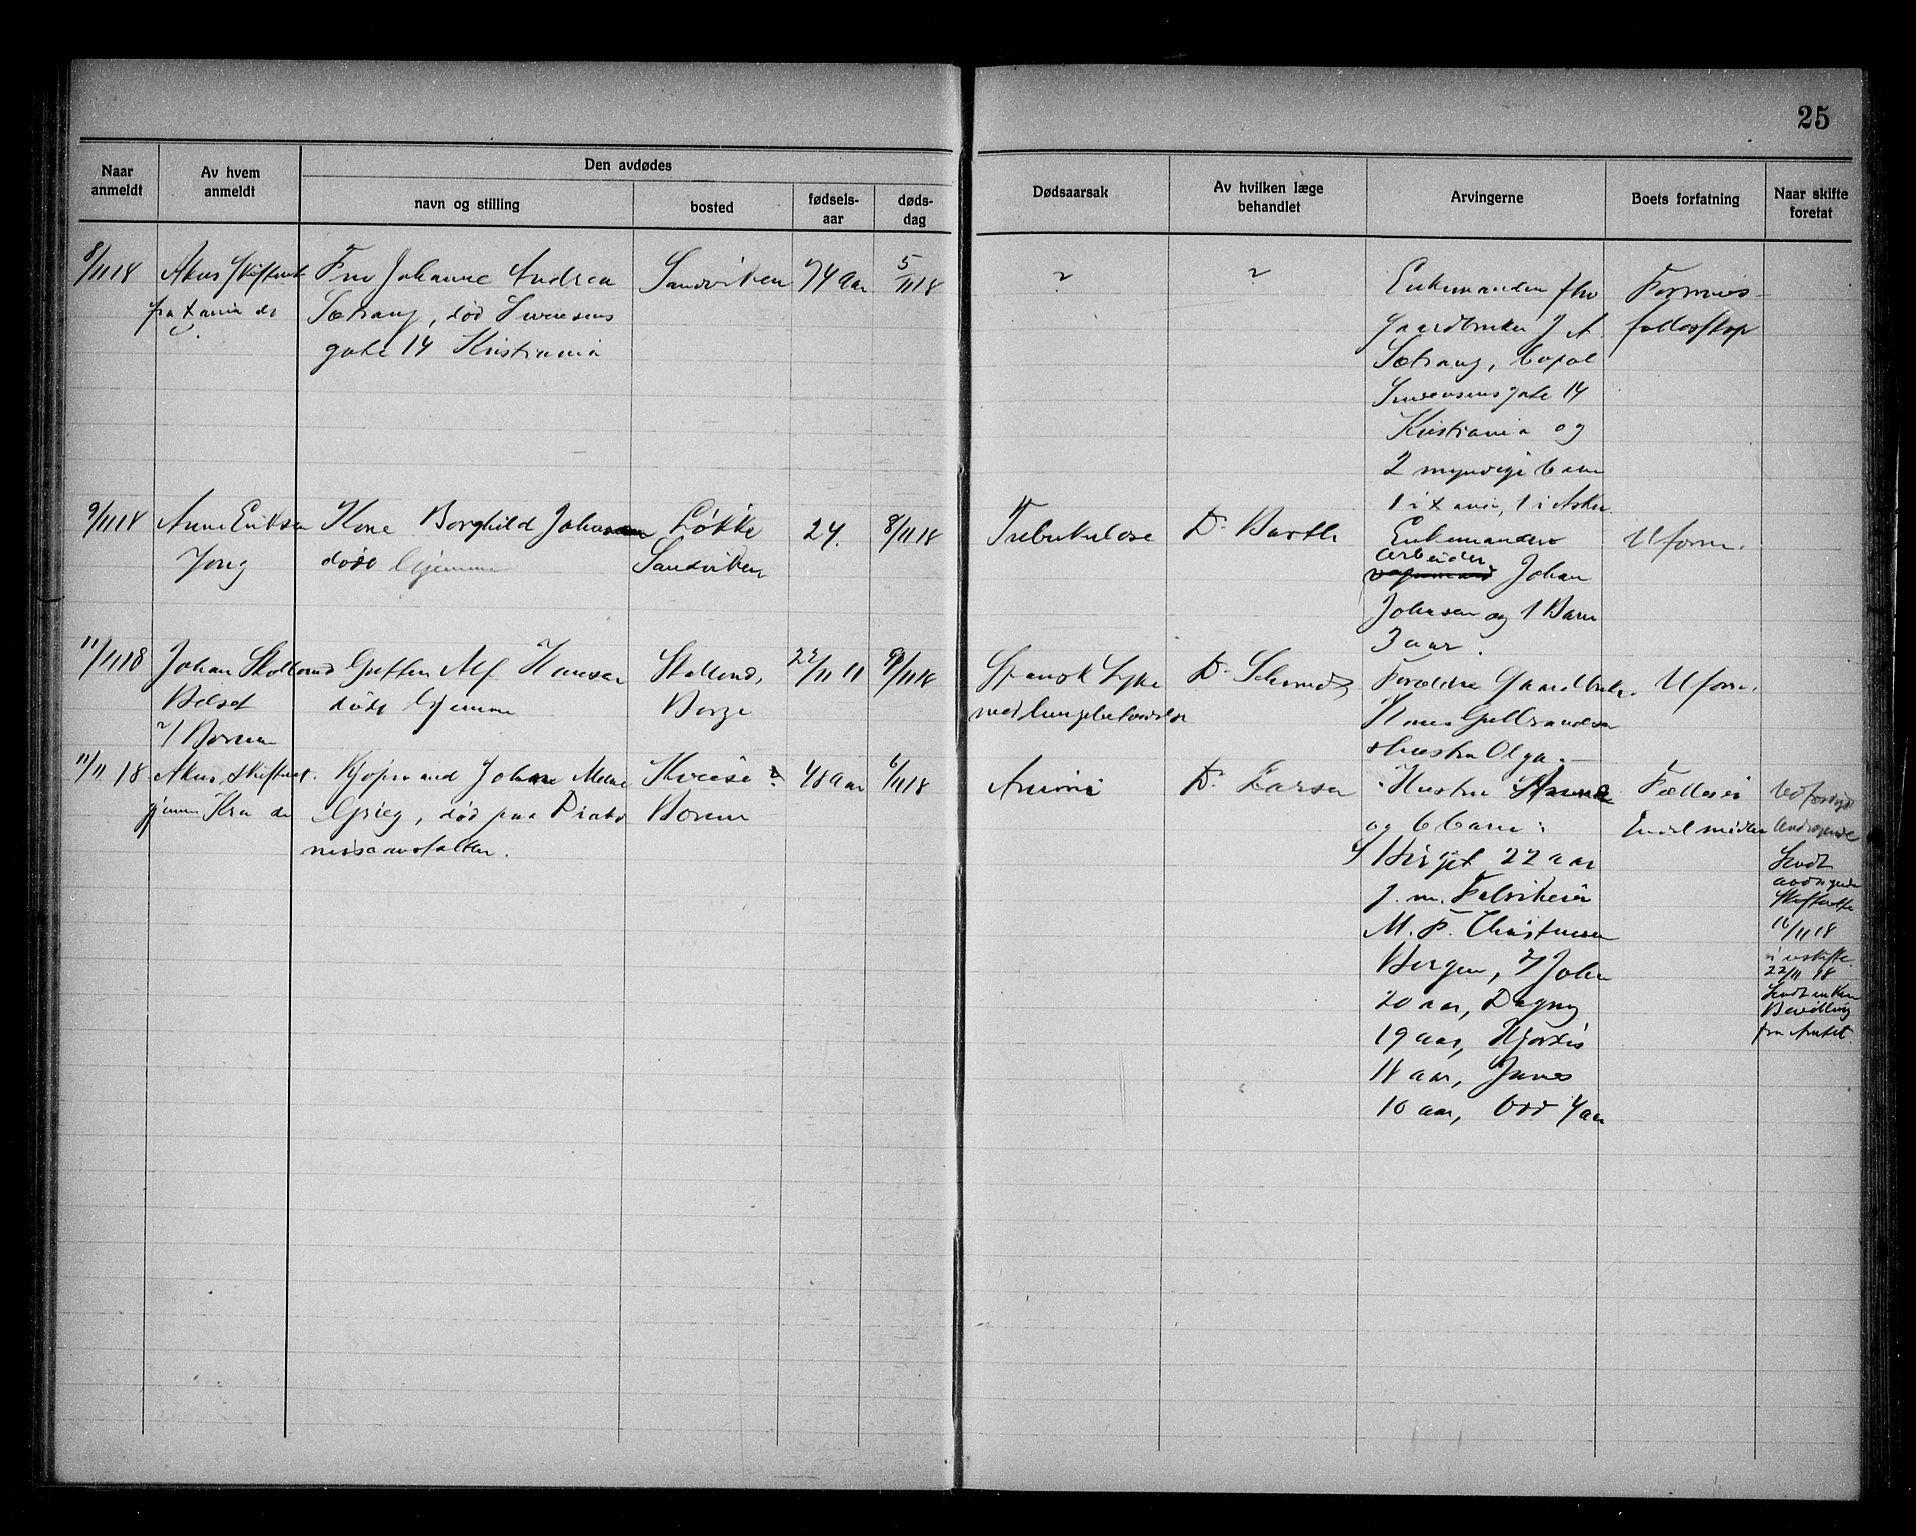 25
Naar anmeldt
Av hvem anmeldt
Den avdødes
navn og stilling
bosted
fødselsaar
dødsdag
Dødsaarsak
Av hvilken læge behandlet
Arvingerne
Boets forfatning
Naar skifte foretat
8/11 18
Akers Skifteret
fra Xania do
Fru Johanne Andrea
Sætrang, død
gate 14 Kristiania
Sandviken
74 aar
5/11 18
?
?
Enkemanden fhv
Gaardbruker J A.
Sætrang, bopæl
gate 14
Kristiania og
2 myndige barn
1 i Xania, 1 i Asker
Formues-
fællesskap
9/11 18
Anne Eriksen
Jong
Kone Borghild Johansen
døde hjemme
Løkke
Sandviken
24.
8/11 18
Tuberkulose
Dr Barth
Enkemanden
arbeider
Johan
Johnsen og 1 Barn
3 aar.
Uform.
11/11 18
Johan Stollund
Belset
Bærum
Gutten Alf Hansen
døde hjemme
Stallund,
Borge
22/11 11
9/11 18
Spansk Syke
med lungebetændelse
Dr Schmidt
Forældre Gaardbruk.
Hans Gulbrandsen
Hustru Olga.
Uform.
11/11 18
Akers skifteret.
gjennem Kra do
Kjøpmand John Melne
Grieg, død paa Diako
nisseanstalten.
?
Bærum
48 aar
6/11 18
Anæmi
Dr. Larsen
Hustru
og 6 barn:
Birgit 22 aar
g. m. Fabrikeier
M. F. Christensen
Bergen, 2/ John
20 aar, Dagny
19 aar, Hjørdis
18 aar, James
16 aar, Odd 7 aar
Fælleseie
Endel midler
Sendt
Skifteretten
16/11 18
i uskifte.
22/11 18
Sendt enken
Bevilling